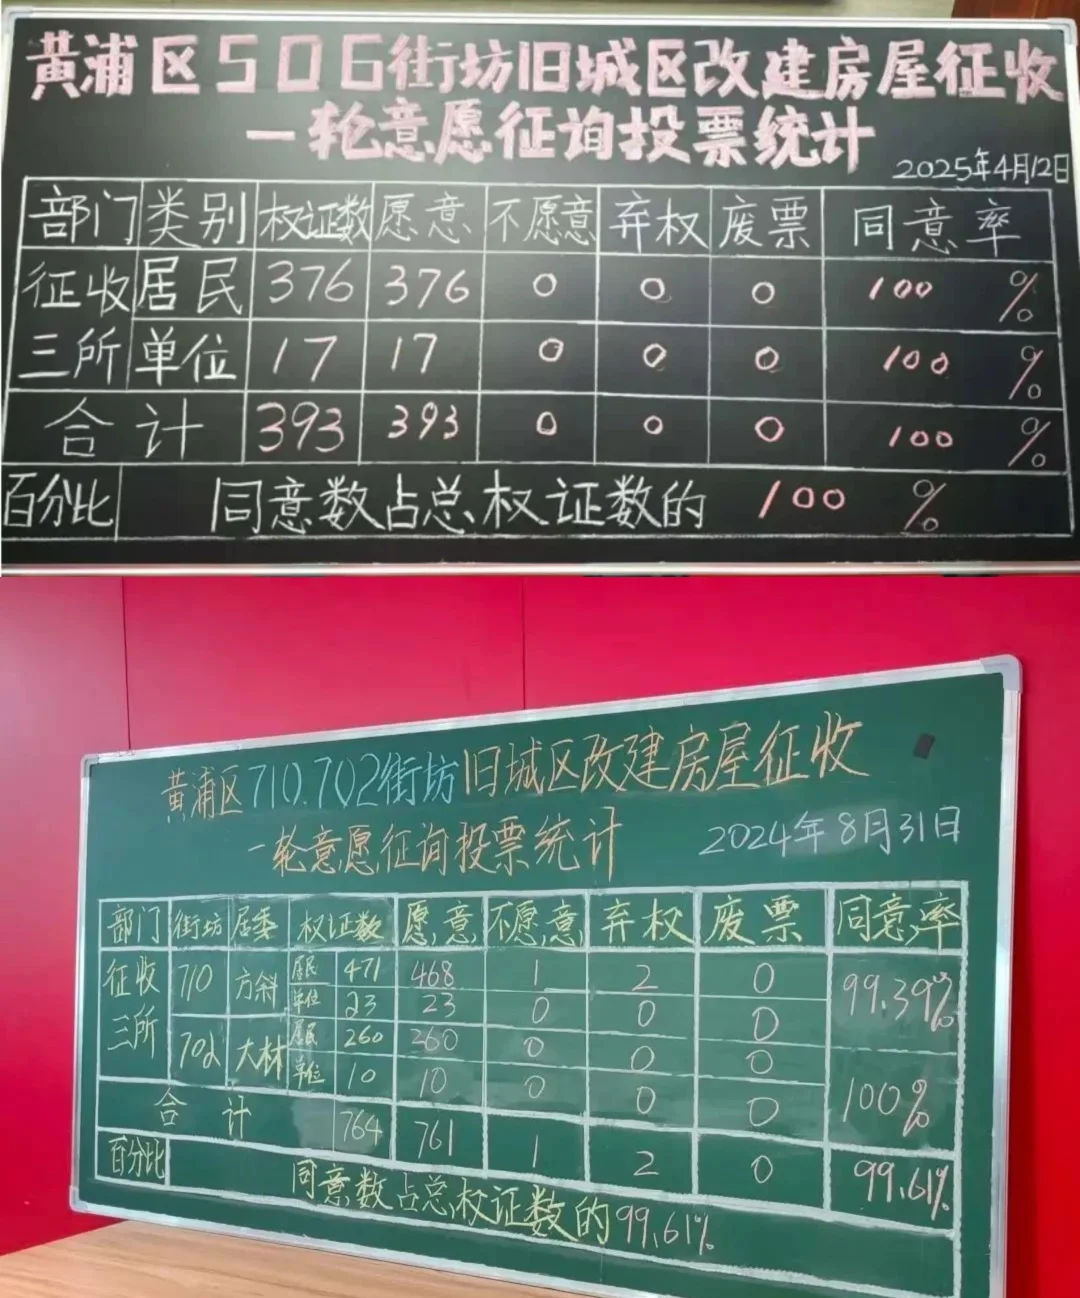 黄浦区506街坊旧城区改建房屋征收
一轮意愿征询投票统计
2025年4月12日
部门 类别 权证数 愿意 不愿意 弃权 废票 同意率
征收 居民 376 376 0 0 0 100 %
三所 单位 17 17 0 0 0 100 %
合计 393 393 0 0 0 100 %
百分比 同意数占总权证数的 100 %
黄浦区710.702街坊旧城区改建房屋征收
一轮意愿征询投票统计 2024年8月31日
部门 街坊 居委 权证数 愿意 不愿意 弃权 废票 同意率
征收三所 710 方斜 居民 471 468 1 2 0 99.39%
单位 23 23 0 0 0
702 大林 居民 260 260 0 0 0 100%
单位 10 10 0 0 0
合计 764 761 1 2 0 99.61%
百分比 同意数占总权证数的99.61%